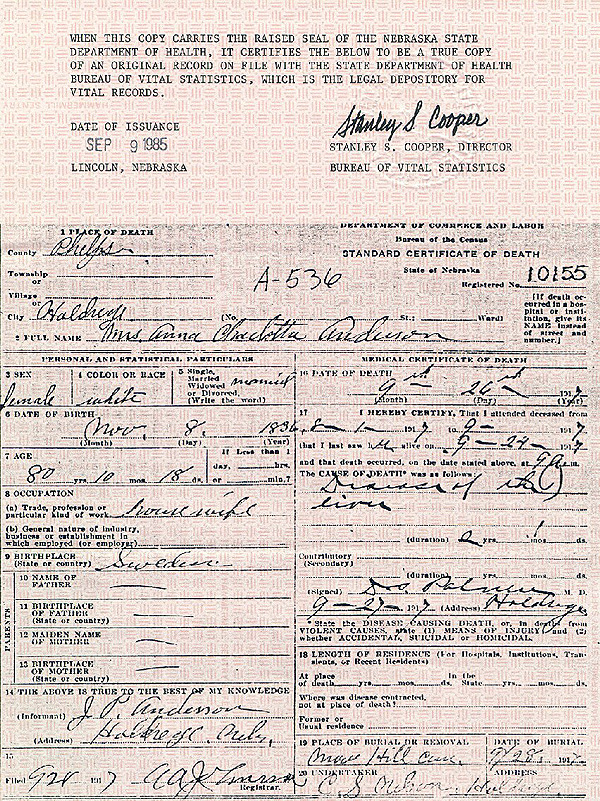 WHEN THIS COPY CARRIES THE RAISED SEAL OF THE NEBRASKA STATE
DEPARTMENT OF HEALTH, IT CERTIFIES THE BELOW TO BE A TRUE COPY
OF AN ORIGINAL RECORD ON FILE WITH THE STATE DEPARTMENT OF HEALTH
BUREAU OF VITAL STATISTICS, WHICH IS THE LEGAL DEPOSITORY FOR
VITAL RECORDS.
DATE OF ISSUANCE
SEP 9 1985
LINCOLN, NEBRASKA
Stanley S Cooper
STANLEY S. COOPER, DIRECTOR
BUREAU OF VITAL STATISTICS
DEPARTMENT OF COMMERCE AND LABOR
Bureau of the Census
STANDARD CERTIFICATE OF DEATH
State of Nebraska
Registered No. 10155
A-536
[If death oc-
curred in a hos-
pital or insti-
tution, give its
NAME instead
of street and
number.]
1 PLACE OF DEATH
County Phelps
Township
or
Village
or
City Holdrege (No. St.; Ward)
2 FULL NAME Mrs Anna Charlotta Anderson
PERSONAL AND STATISTICAL PARTICULARS
3 SEX female
4 COLOR OR RACE white
5 Single, Married Widowed or Divorced. (Write the word) married
6 DATE OF BIRTH Nov. 8, 1836
(Month) (Day) (Year)
7 AGE
80 yrs. 10 mos. 18 ds.
If Less than 1
day, hrs.
or min.?
8 OCCUPATION
(a) Trade, profession or
particular kind of work housewife
(b) General nature of industry,
business or establishment in
which employed (or employer)
9 BIRTHPLACE
(State or country) Sweden
PARENTS
10 NAME OF
FATHER
11 BIRTHPLACE
OF FATHER
(State or country)
12 MAIDEN NAME
OF MOTHER
13 BIRTHPLACE
OF MOTHER
(State or country)
14 THE ABOVE IS TRUE TO THE BEST OF MY KNOWLEDGE
(Informant) J. P. Anderson
(Address) Holdrege, Neb.
15
Filed 191 7
Registrar.
MEDICAL CERTIFICATE OF DEATH
16 DATE OF DEATH
9 26 191 7
(Month) (Day) (Year)
17 I HEREBY CERTIFY, That I attended deceased from
8-1- 191 7 to 9- 191 7
that I last saw her alive on 9-24- 191 7
and that death occurred, on the date stated above, at 9 a m.
The CAUSE OF DEATH* was as follows:
Disease of the
liver
(duration) 2 yrs. mos. ds.
Contributory
(Secondary)
(duration) yrs. mos. ds.
(Signed) Palmer M. D.
9-27- 191 7 (Address) Holdrege
*State the DISEASE CAUSING DEATH, or, in deaths from
VIOLENT CAUSES, state (1) MEANS OF INJURY; and (2)
whether ACCIDENTAL, SUICIDAL or HOMICIDAL.
18 LENGTH OF RESIDENCE (For Hospitals, Institutions, Tran-
sients, or Recent Residents)
At place
of death yrs. mos. ds.
In the
State yrs. mos. ds.
Where was disease contracted,
not at place of death?
Former or
Usual residence
19 PLACE OF BURIAL OR REMOVAL
Hill Cem.
DATE OF BURIAL
9/28 191 7
20 UNDERTAKER
C. S. Nelson
ADDRESS
Holdrege